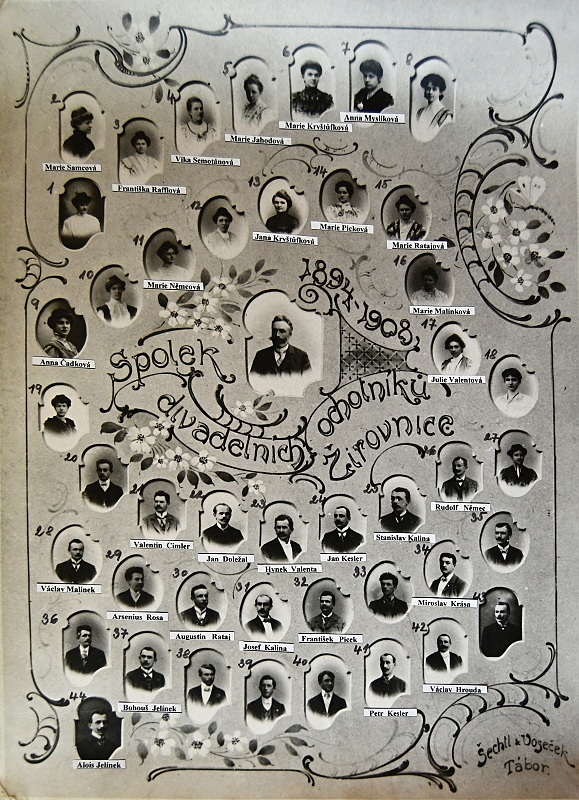 6
7
8
5
4
2
3
Anna Myslíková
Marie Kryštůfková
Marie Jahodová
Vika Semotánová
Marie Samcová
Františka Rafflová
1
12
13
14
15
Marie Picková
Jana Kryštůfková
Marie Ratajová
11
10
Marie Němcová
16
Marie Malínková
9
Anna Čadková
17
18
Julie Valentová
19
1894-1908
Spolek
divadelních ochotníků
Žirovnice
20
21
22
23
24
25
26
27
Rudolf Němec
Valentin Cimler
Jan Doležal
Hynek Valenta
Jan Kesler
Stanislav Kalina
28
29
30
31
32
33
34
35
Václav Malínek
Arsenius Rosa
Augustin Rataj
Josef Kalina
František Picek
Miroslav Krása
36
37
38
39
40
41
42
43
Bohouš Jelínek
Petr Kesler
Václav Hrouda
44
Alois Jelínek
Šechtl & Voseček
Tábor.